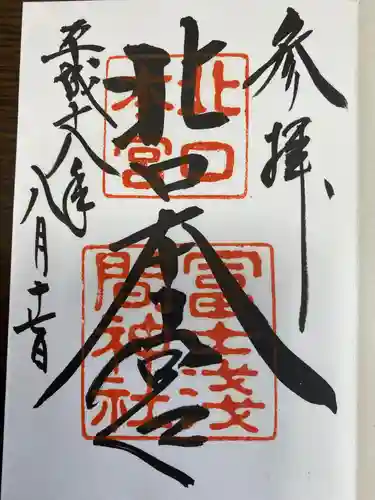 参拝
北口本宮
北口
本宮
冨士淺
間神社
平成十八年
八月